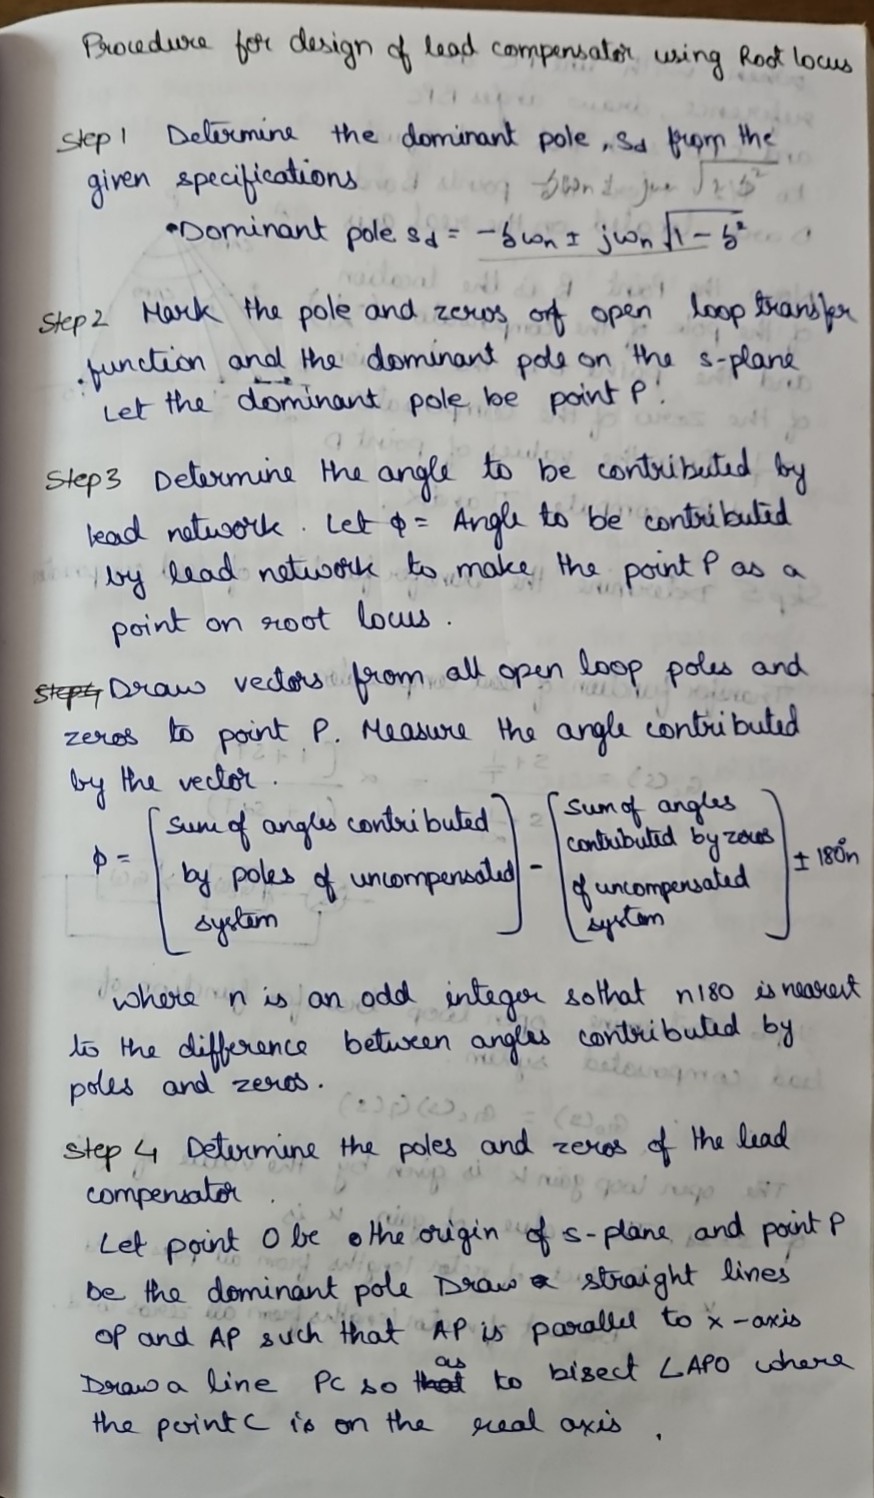 Procedure for design of lead compensator using Root locus
Step 1 Determine the dominant pole, sd from the
given specifications
•Dominant pole sd = -ζωn ± jωn √1-ζ²
Step 2 Mark the pole and zeros of open loop transfer
function and the dominant pole on the s-plane
Let the dominant pole be point P.
Step 3 Determine the angle to be contributed by
lead network. Let ϕ = Angle to be contributed
by lead network to make the point P as a
point on root locus.
Draw vectors from all open loop poles and
zeros to point P. Measure the angle contributed
by the vector.
ϕ = [Sum of angles contributed by poles of uncompensated system] - [Sum of angles contributed by zeros of uncompensated system] ± 180°n
where n is an odd integer so that n180 is nearest
to the difference between angles contributed by
poles and zeros.
Step 4 Determine the poles and zeros of the lead
compensator.
Let point O be the origin of s-plane and point P
be the dominant pole Draw straight lines
OP and AP such that AP is parallel to x-axis
Draw a line PC so as to bisect ∠APO where
the point C is on the real axis.